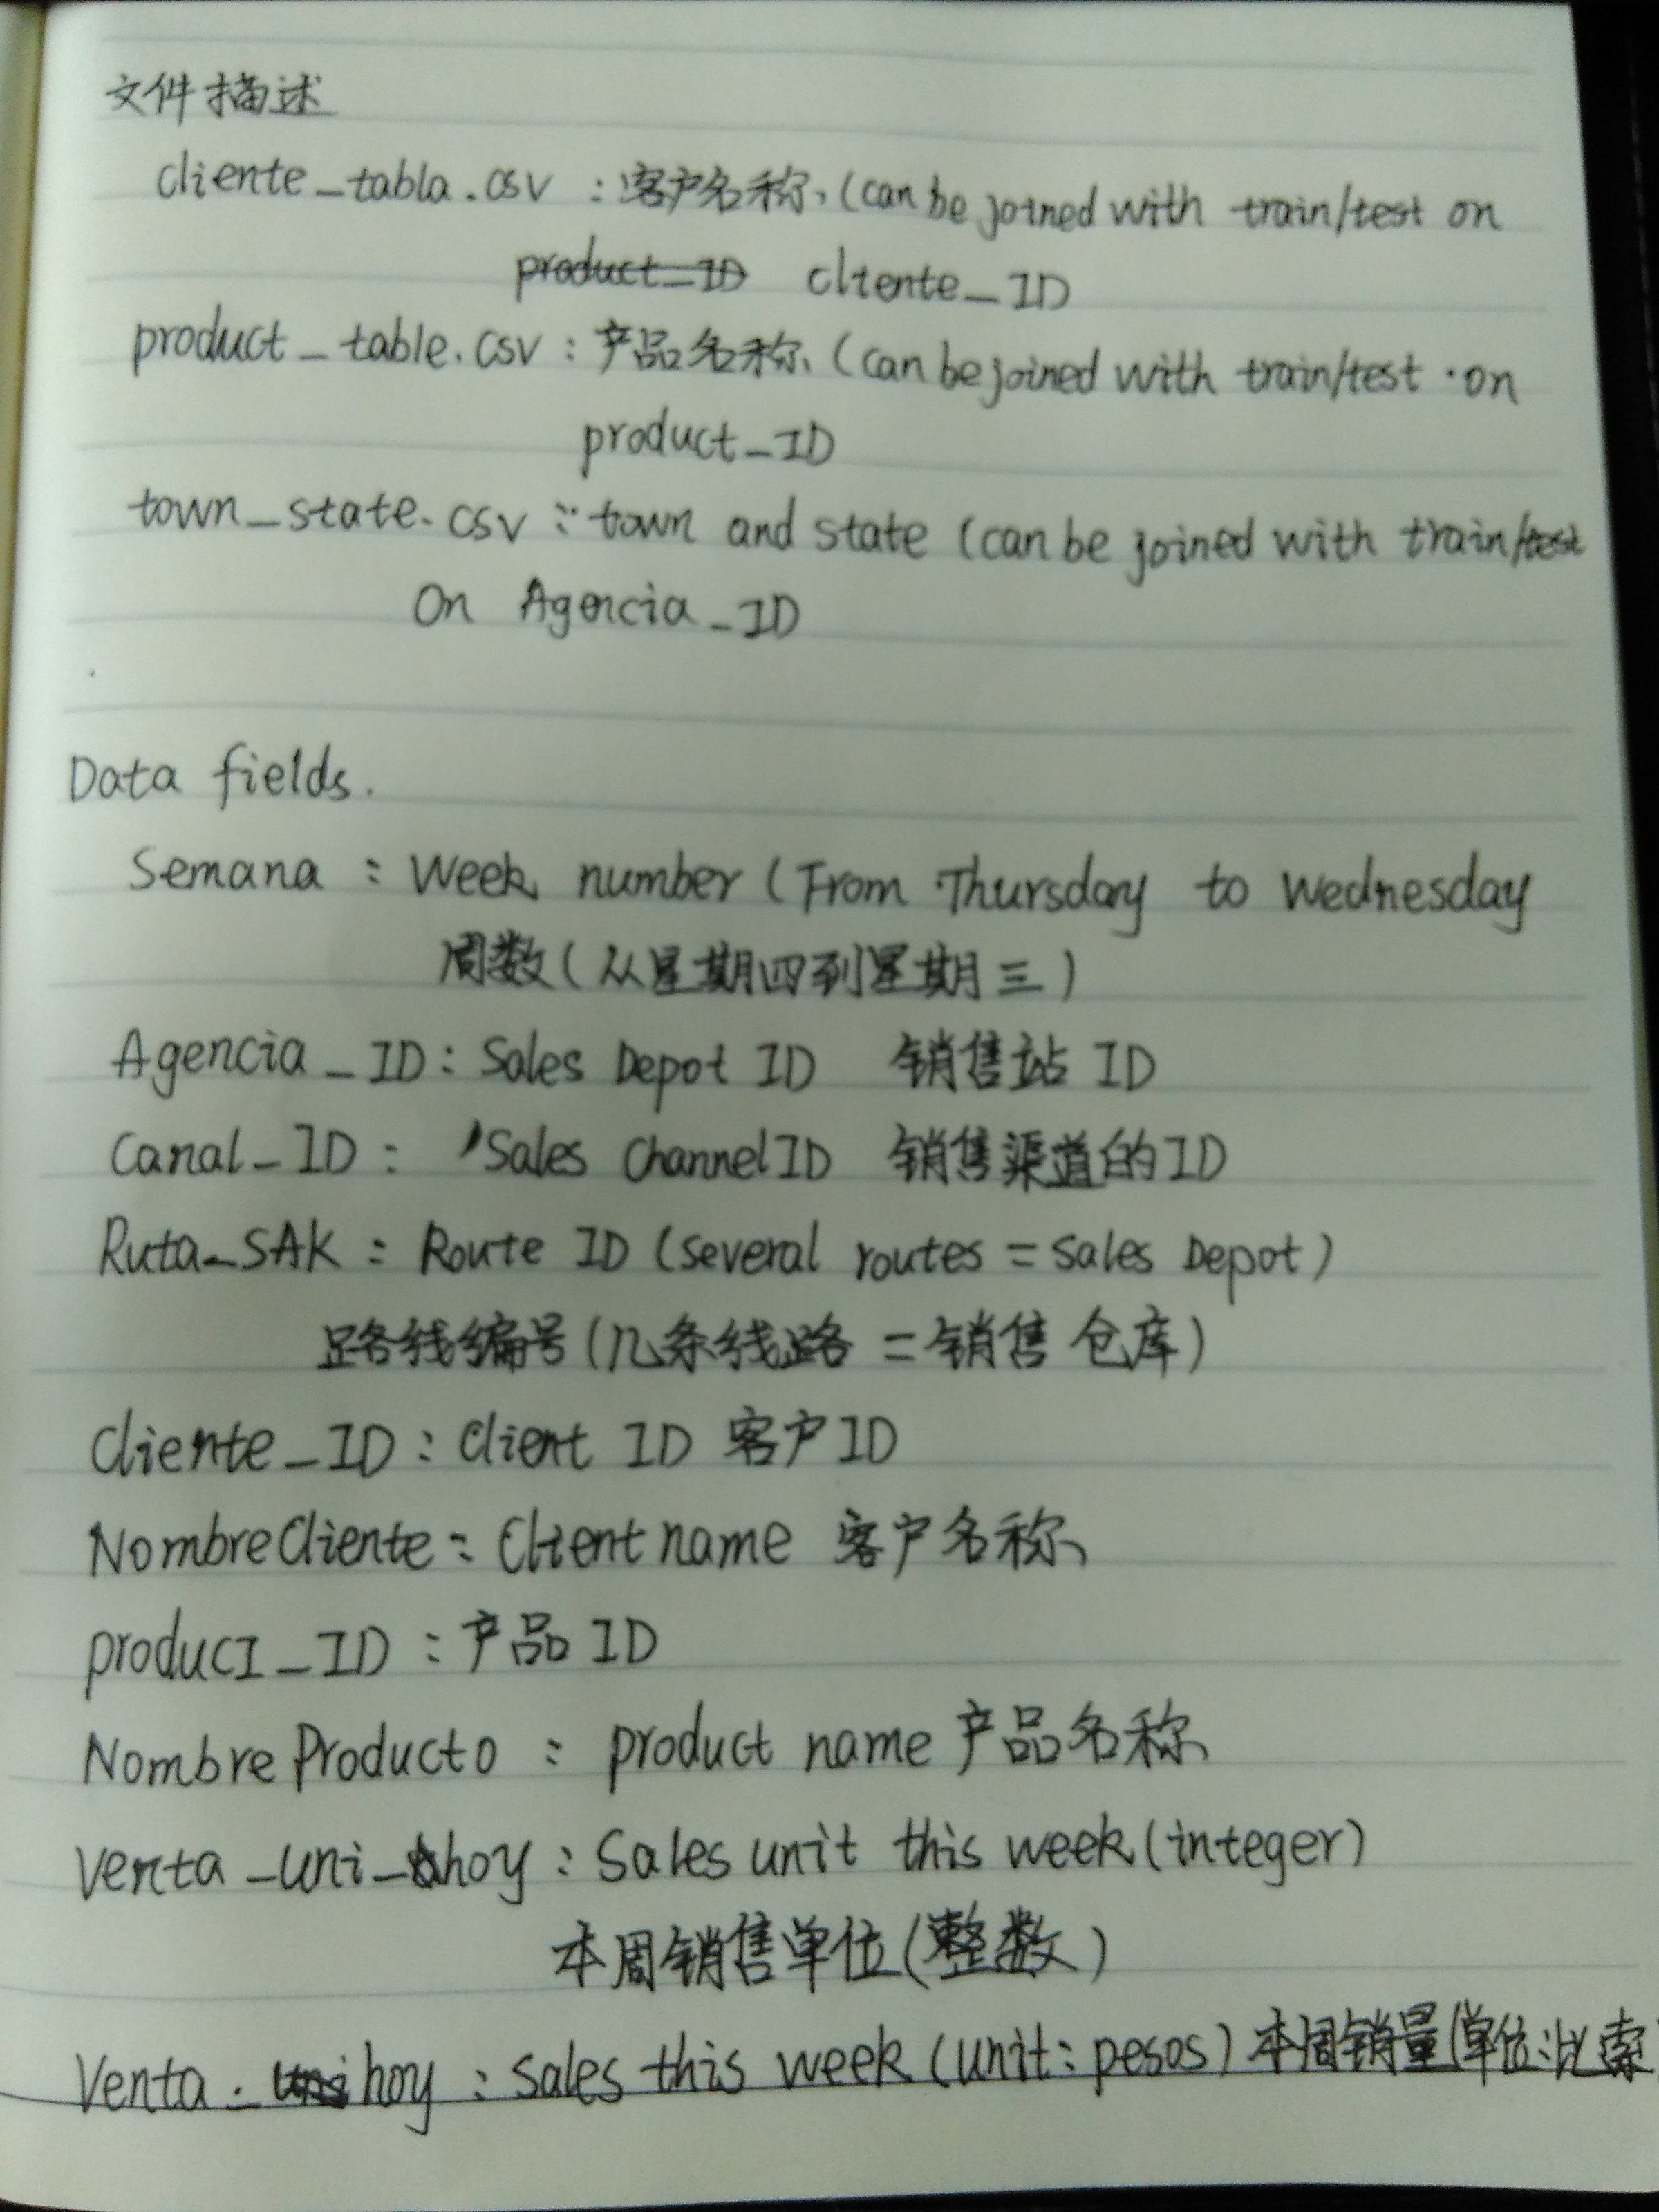 文件描述
cliente_tabla.csv : 客户名称 (can be joined with train/test on
product_ID cliente_ID
product_table.csv : 产品名称 (can be joined with train/test on
product_ID
town_state.csv : town and state (can be joined with train/test
on Agencia_ID
Data fields.
Semana : Week number (From Thursday to Wednesday
周数(从星期四到星期三)
Agencia_ID : Sales Depot ID 销售站 ID
Canal_ID : Sales Channel ID 销售渠道的ID
Ruta_SAK : Route ID (several routes = Sales Depot)
路线编号(几条线路 = 销售仓库)
Cliente_ID : Client ID 客户ID
NombreCliente : Client name 客户名称
producI_ID : 产品 ID
NombreProducto : product name 产品名称
Venta_uni_hoy : Sales unit this week (integer)
本周销售单位(整数)
Venta_hoy : sales this week (unit: pesos) 本周销量(单位:比索)